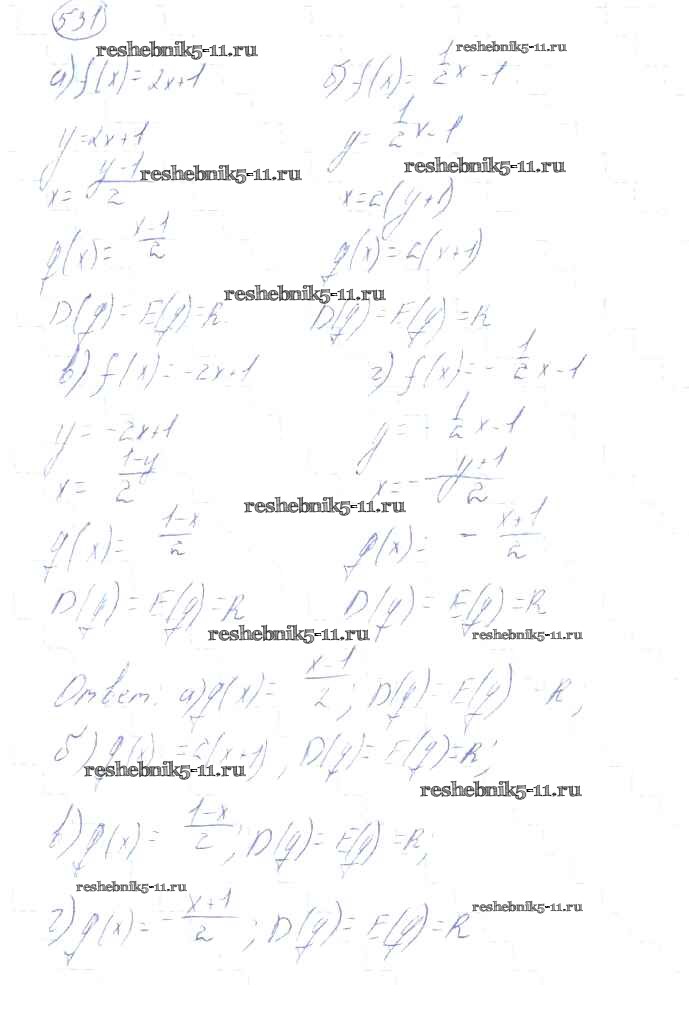 531
reshebnik5-11.ru
reshebnik5-11.ru
а) f(x) = 2x+1
б) f(x) = 1/2 x - 1
y = 2x+1
y = 1/2 x - 1
reshebnik5-11.ru
reshebnik5-11.ru
x = (y-1)/2
x = 2(y+1)
g(x) = (x-1)/2
g(x) = 2(x+1)
reshebnik5-11.ru
D(g) = E(g) = R
D(g) = E(g) = R
в) f(x) = -2x+1
г) f(x) = - 1/2 x - 1
y = -2x+1
y = - 1/2 x - 1
x = (1-y)/2
x = - (y+1)/2
reshebnik5-11.ru
g(x) = (1-x)/2
g(x) = - (x+1)/2
D(g) = E(g) = R
D(g) = E(g) = R
reshebnik5-11.ru
reshebnik5-11.ru
Ответ: а) g(x) = (x-1)/2; D(g) = E(g) = R;
б) g(x) = 2(x+1); D(g) = E(g) = R;
reshebnik5-11.ru
reshebnik5-11.ru
в) g(x) = (1-x)/2; D(g) = E(g) = R;
reshebnik5-11.ru
reshebnik5-11.ru
г) g(x) = - (x+1)/2; D(g) = E(g) = R